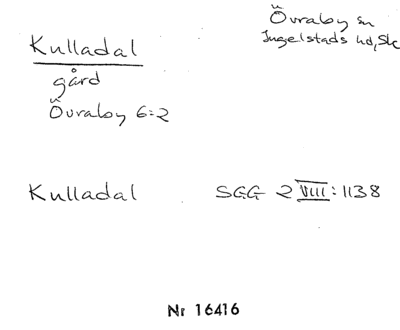 Kulladal
gård
Övraby 6:2
Övraby sn
Ingelstads hd, Sk
Kulladal SGG 2 VIII:1138
Nr 16416